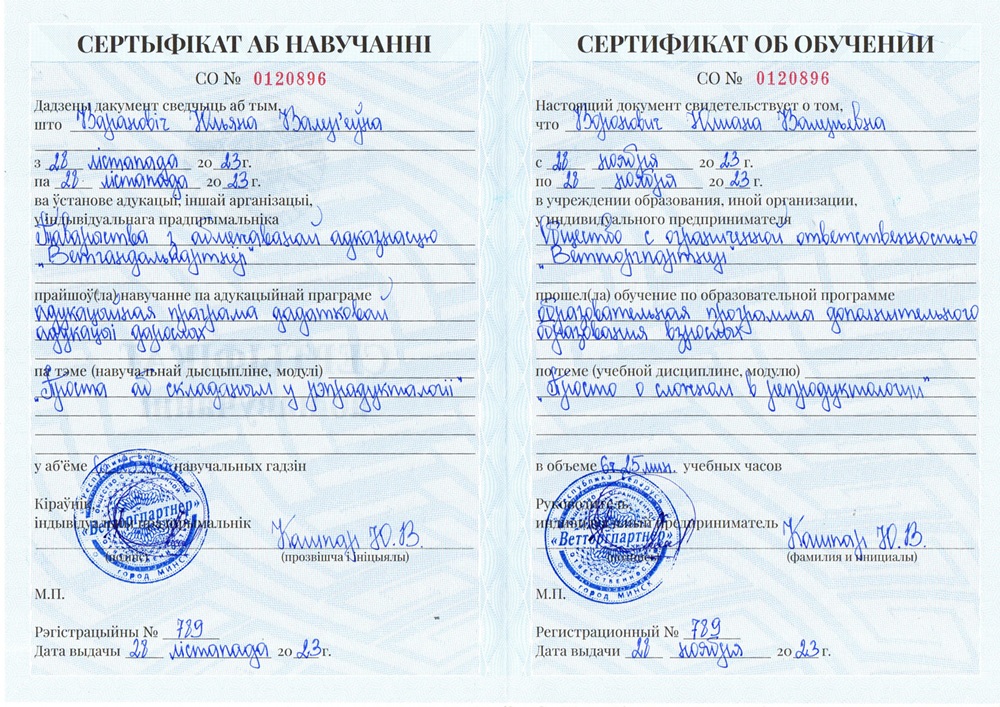 СЕРТЫФІКАТ АБ НАВУЧАННІ
СО № 0120896
Дадзены дакумент сведчыць аб тым,
што
з 28 лістапада 2023 г.
па 28 лістапада 2023 г.
ва ўстанове адукацыі, іншай арганізацыі,
у індывідуальнага прадпрымальніка
Таварыства з абмежаванай адказнасцю
прайшоў(ла) навучанне па адукацыйнай праграме
адукацыйная праграма дадатковай
адукацыі дарослых
па тэме (навучальнай дысцыпліне, модулі)
"Проста аб складаным у рэпрадукталогіі"
у аб'ёме навучальных гадзін
Кіраўнік
індывідуальны прадпрымальнік
Кашпар Ю.В.
(прозвішча і ініцыялы)
М.П.
Рэгістрацыйны № 789
Дата выдачы 28 лістапада 2023 г.
СЕРТИФИКАТ ОБ ОБУЧЕНИИ
СО № 0120896
Настоящий документ свидетельствует о том,
что
с 28 ноября 2023 г.
по 28 ноября 2023 г.
в учреждении образования, иной организации,
у индивидуального предпринимателя
Общество с ограниченной ответственностью
"Ветторгпартнер"
прошел(ла) обучение по образовательной программе
образовательная программа дополнительного
образования взрослых
по теме (учебной дисциплине, модулю)
"Просто о сложном в репродуктологии"
в объеме 6ч 25мин. учебных часов
Руководитель
индивидуальный предприниматель
Кашпар Ю.В.
(фамилия и инициалы)
«Ветторгпартнер»
город Минск
М.П.
Регистрационный № 789
Дата выдачи 28 ноября 2023 г.